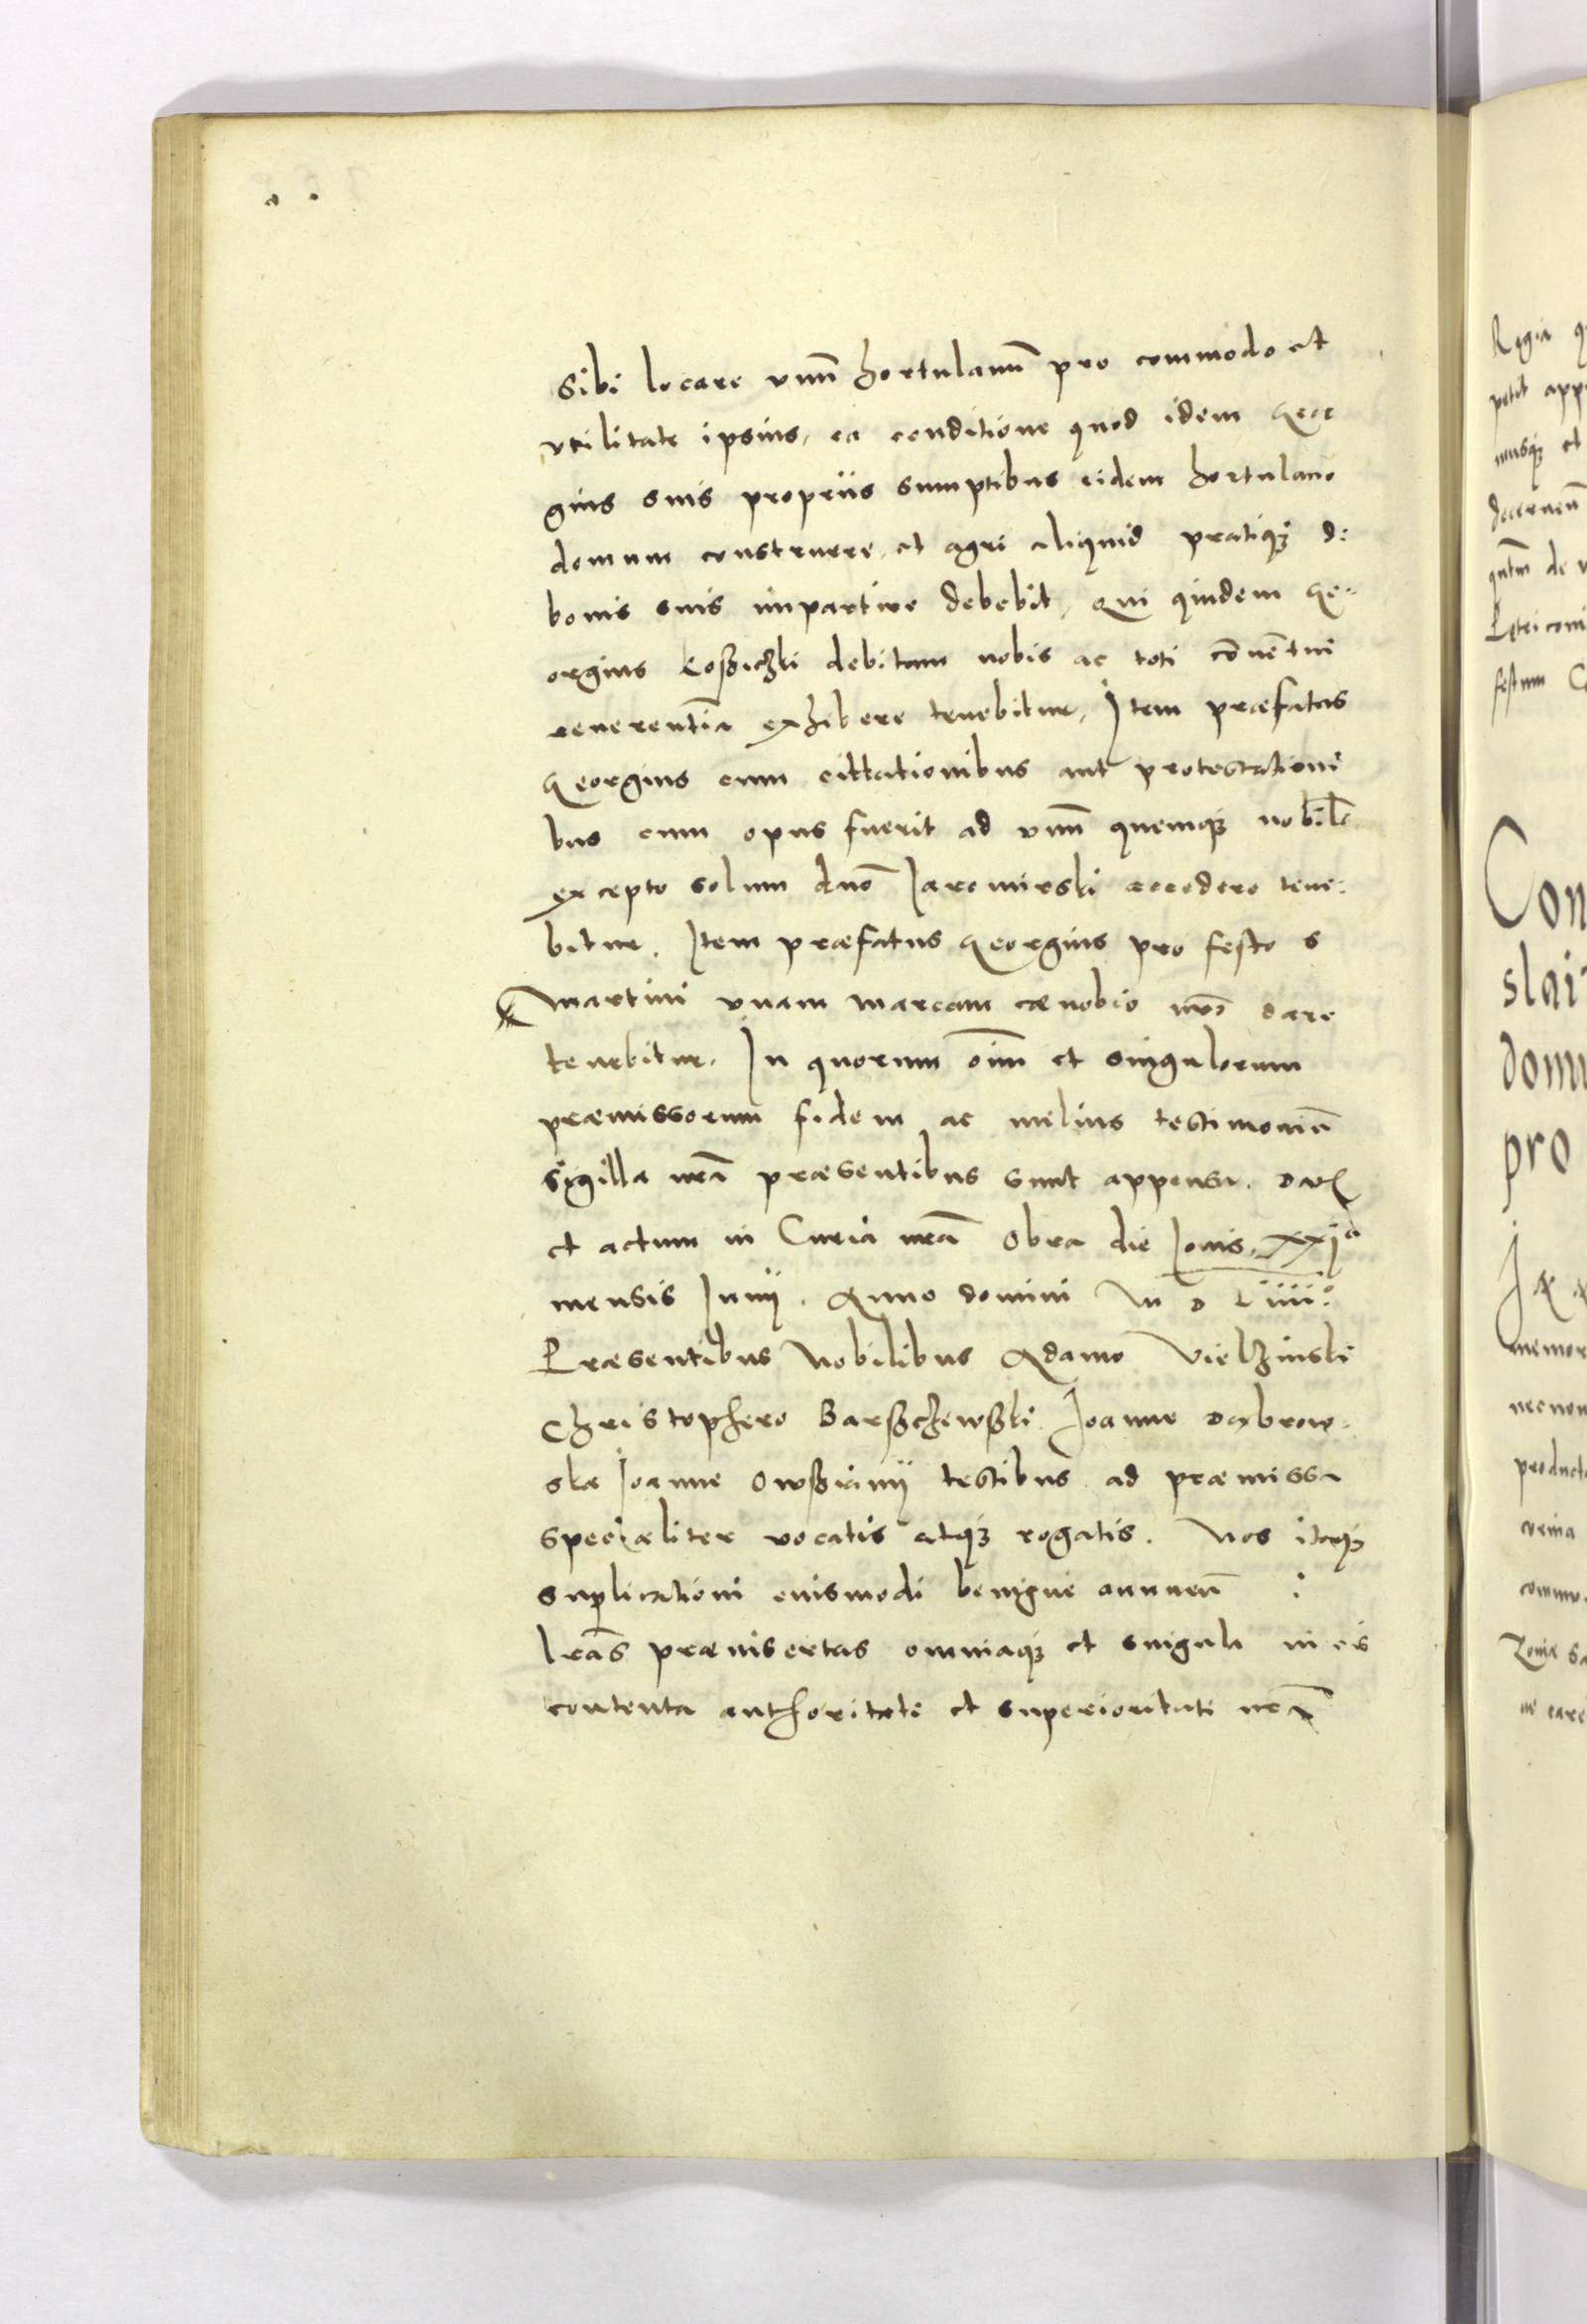 Sibi locare vnū hortulanū pro commodo et
vtilitate ipsius, ea conditione quod idem Geor
gius suis propriis sumptibus eidem hortulano
domum construere, et agri aliquid pratiq3 de
bonis suis impartire debebit, Qui quidem Ge-
orgius Koszichki debitam nobis ac toti cōuētui
reuerentiā exhibere tenebitur, Item præfatus
Georgius cum cittationibus aut protestationi
bus cum opus fuerit ad vnū quemq3 nobilē
excepto solum dno Jaromirski accedere tene-
bitur. Item præfatus Georgius pro festo s
Martini vnam marcam cænobio nro dare
tenebitur. In quorum oīm et singulorum
præmissorum fidem ac melius testimoniū
sigilla nrā præsentibus sunt appensa. Dat
et actum in Curia nrā Obra die Jouis, xxja
mensis Junij. Anno domini M D Liiii.
Præsentibus Nobilibus Adamo Vielzinski
Christophero Barszchewski Joanne Dabrow-
ska Joanne Owsziannij testibus ad præmissa
specialiter vocatis atq3 rogatis. Nos itaq3
suplicationi euismodi benigne annuen :
lrās præinsertas omniaq3 et singula in eis
contenta authoritate et superioritati nrā
Con
slai
domi
pro